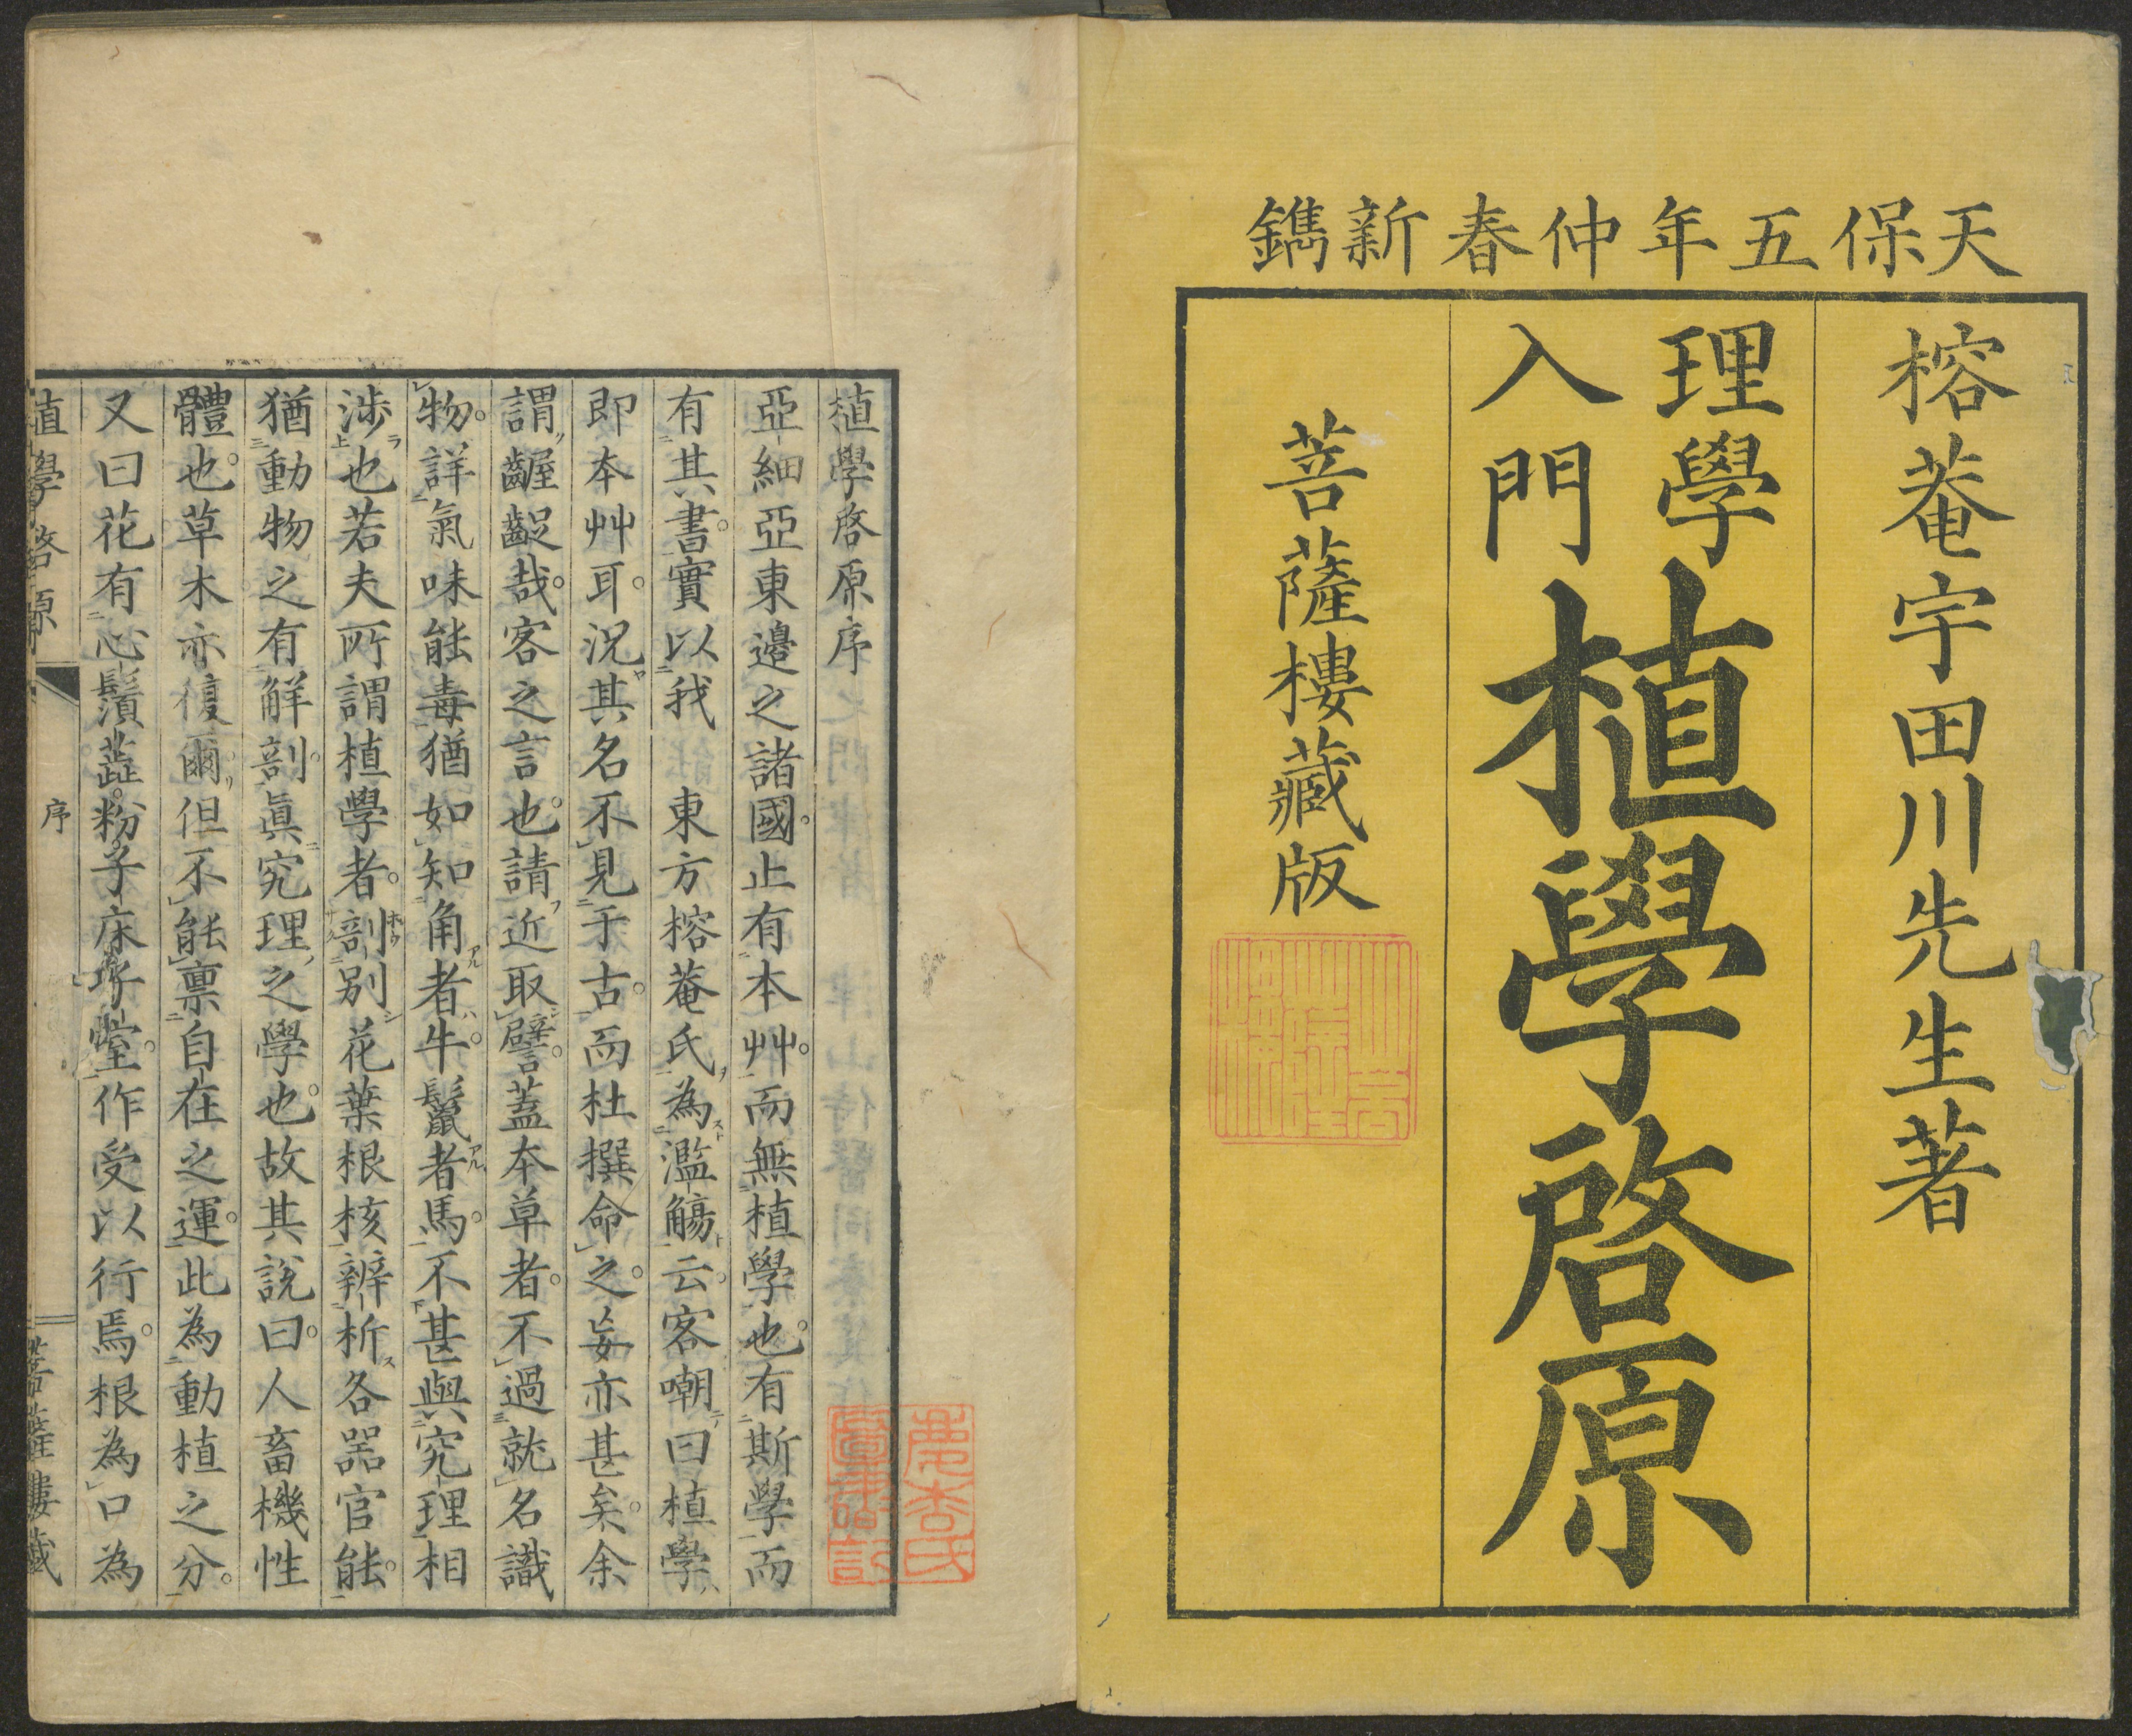 天保五年仲春新鐫
榕菴宇田川先生著
理學
入門
植學啓原
菩薩樓藏版
植學啓原序
亞細亞東邊之諸國。止有本艸。而無植學也。有斯學而
有其書。實以我 東方榕菴氏為濫觴云。客嘲曰植學
即本艸耳。況其名不見于古。而杜撰命之。妄亦甚矣。余
謂齷齪哉。客之言也。請近取譬。蓋本草者。不過就名識
物。詳氣味能毒猶如知角者牛。鬣者馬。不甚與究理相
渉也若夫所謂植學者。剖別花葉根核辨析各器官能。
猶動物之有解剖。眞究理之學也。故其說曰。人畜機性
體也。草木亦復爾。但不能禀自在之運。此為動植之分。
又曰花有心鬚蕋。粉子床。子室。作受以行焉。根為口為
植學啓原
序
菩薩樓藏